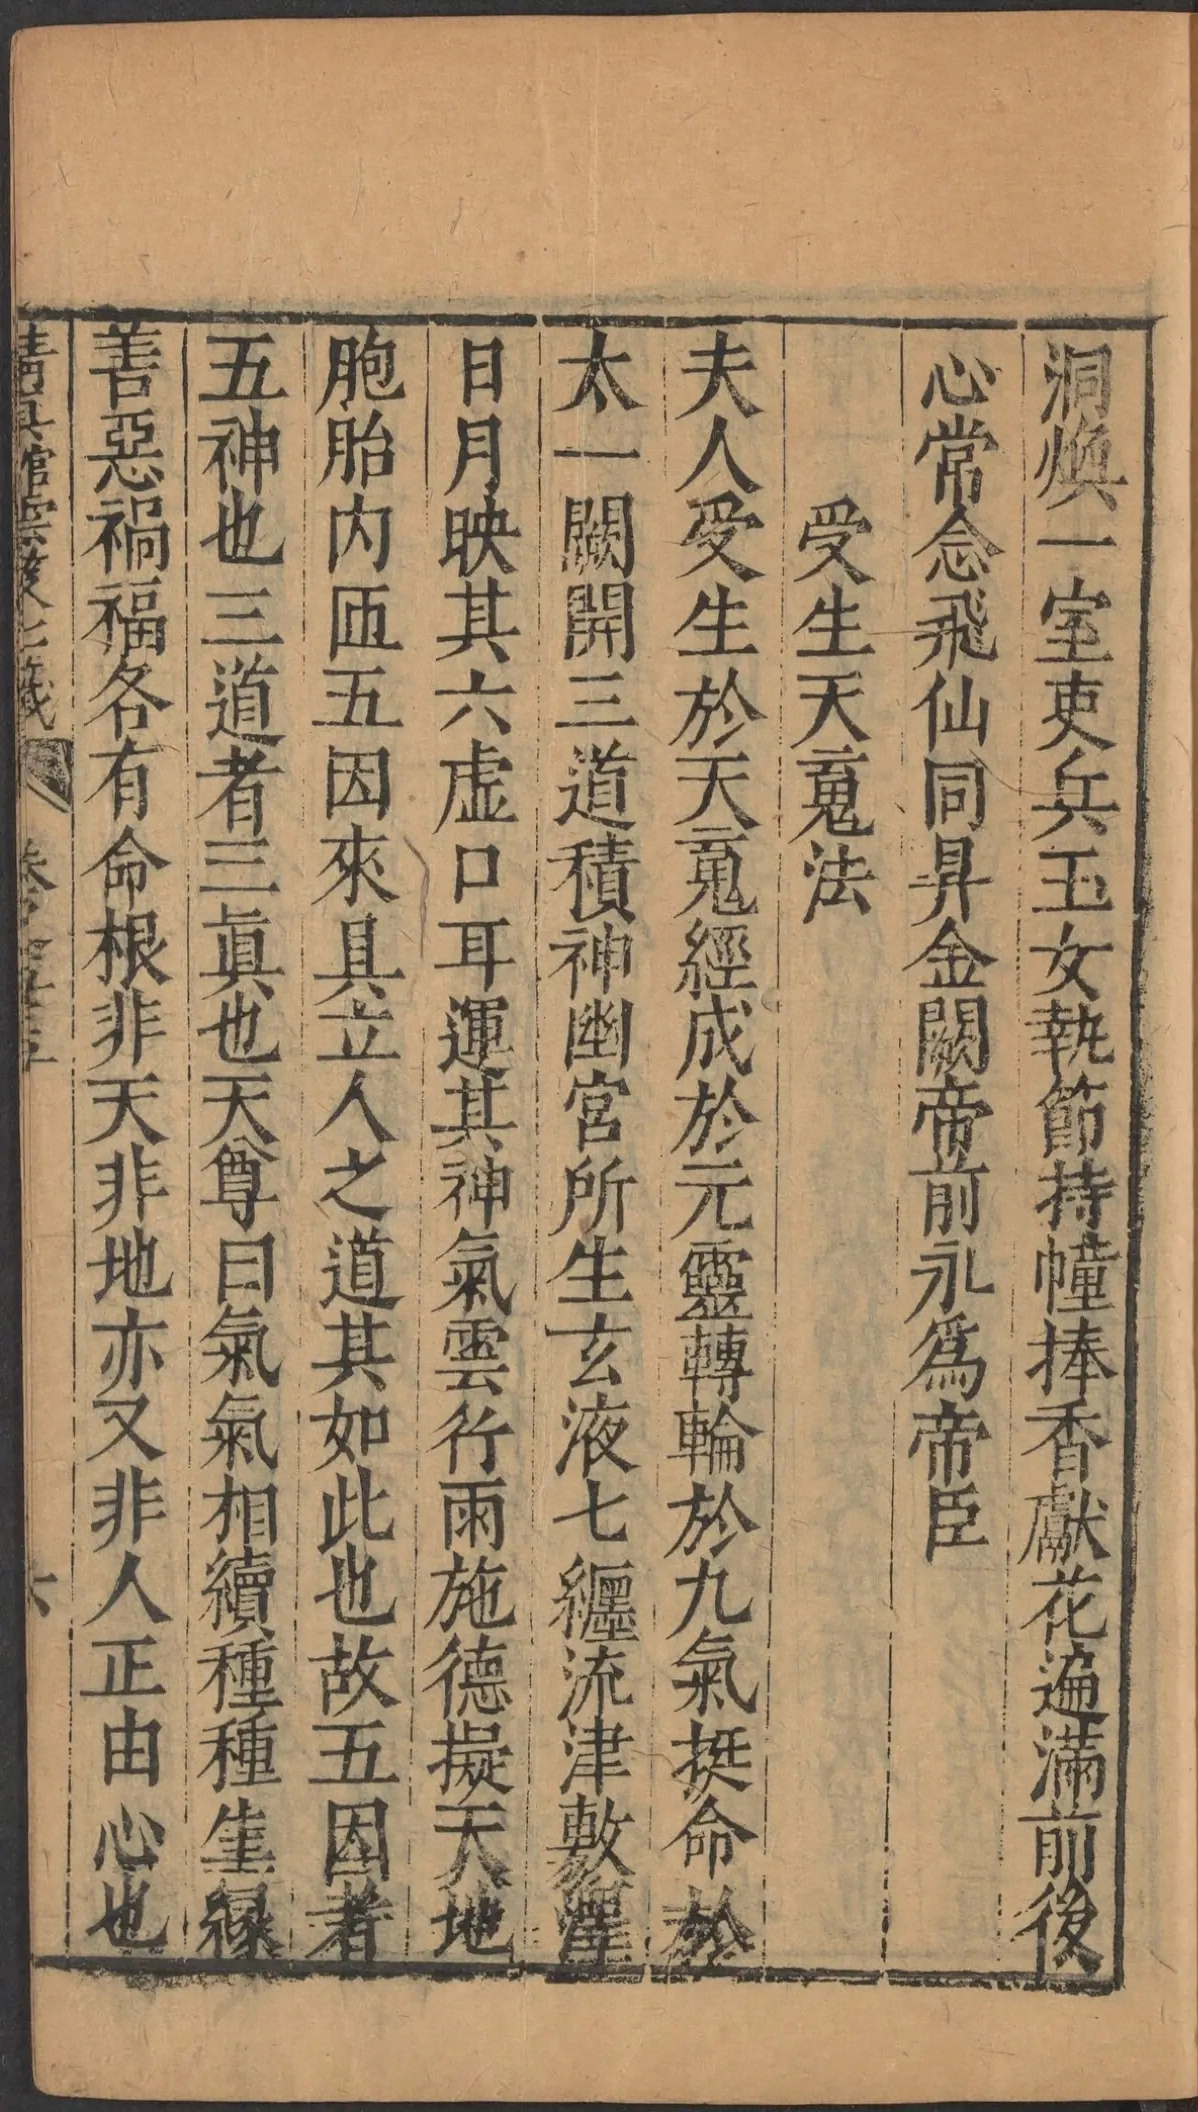 洞煥一室吏兵玉女執節持幢捧香獻花遍滿前後
心常念飛仙同昇金闕帝前永爲帝臣
受生天䰟法
夫人受生於天䰟經成於元靈轉輪於九氣挺命於
太一闕開三道積神幽宮所生玄液七纏流津敷澤
日月映其六虛口耳運其神氣雲行雨施德擬天地
胞胎內匝五因來具立人之道其如此也故五因者
五神也三道者三眞也天尊曰氣氣相續種種生緣
善惡禍福各有命根非天非地亦又非人正由心也
清眞館雲笈七籤
六